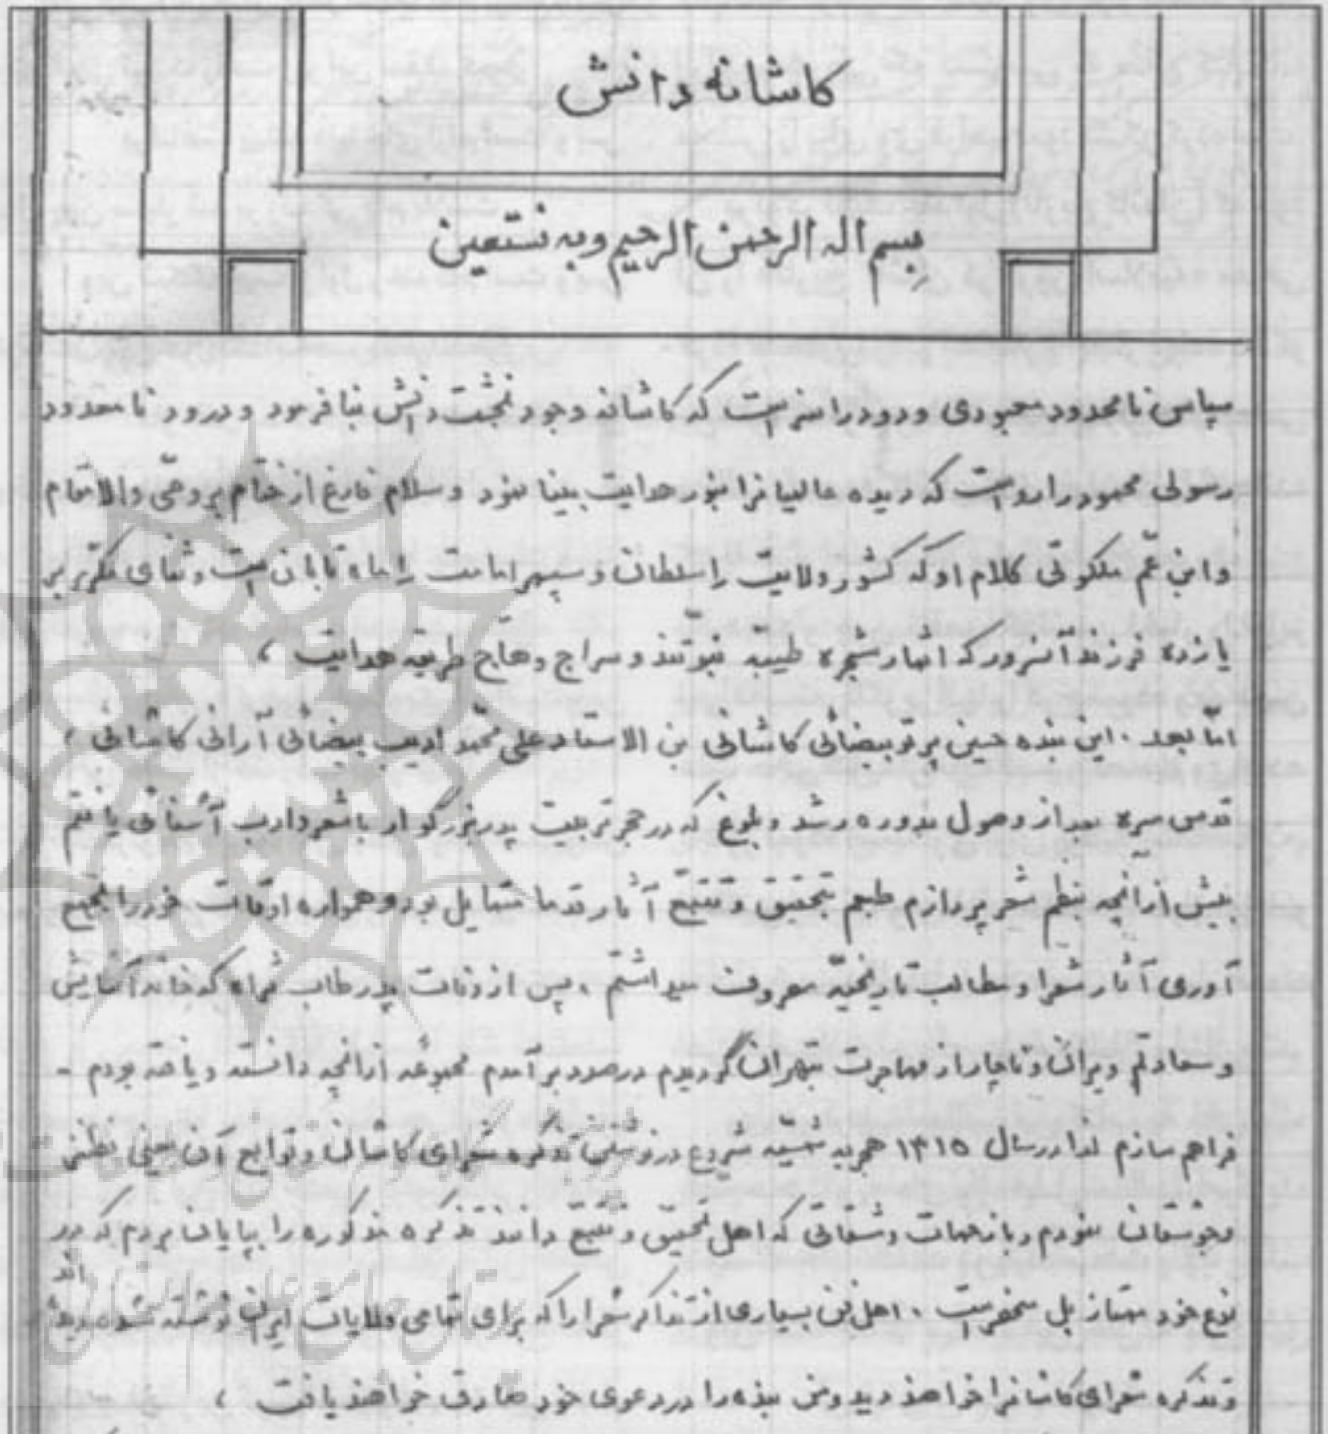 کاشانه دانش
بسم اله الرحمن الرحیم وبه نستعین
سپاس نامحدود معبودی ودود را سزاست که کاشانه وجود نخست دانش بنا فرمود و درود نامعدود
رسولی محمود را رواست که دیده عالمیانرا بنور هدایت بینا نمود و سلام فارغ از ختام بر وصی والامقام
وابن عّم ملکوتی کلام او که کشور ولایت را سلطان و سپهر امامت را ماه تابان است و ثنای مکرّر بر
یازده فرزند آنسرور که اثمار شجره طیبّه نبوّتند و سراج وهاّج طریقه هدایت ،
امّا بعد . این بنده حسین پرتو بیضائی کاشانی بن الاستاد علی محمّد ادیب بیضائی آرانی کاشانی ،
قدس سره بعد از وصول بدوره رشد و بلوغ که در حجر تربیت پدر بزرگوار با شعر و ادب آشنائی یافتم
بیش از آنچه بنظم شعر پردازم طبعم بتحقیق و تتبّع آثار قدما متمایل بود و همواره اوقات خود را بجمع
آوری آثار شعرا و مطالب تاریخیّه مصروف میداشتم ، پس از وفات پدر طاب ثراه که خانه آسایش
و سعادتم ویران و ناچار از مهاجرت بتهران گردیدم درصدد برآمدم مجموعه از آنچه دانسته و یافته بودم -
فراهم سازم لذا در سال ۱۳۱۵ هجریه شمسیّه شروع در نوشتن تذکره شعرای کاشان و توابع آن یعنی نطنز
وجوشقان نمودم و با زحمات و مشقاتی که اهل تحقیق و تتبع دانند تذکره مذکوره را بپایان بردم که در
نوع خود ممتاز بل منحصر است . اهل فن بسیاری از تذاکر شعرا را که برای تمامی ولایات ایران نوشته شده اند
و تذکره شعرای کاشانرا خواهند دید و من بنده را در دعوی خود صادق خواهند یافت ،